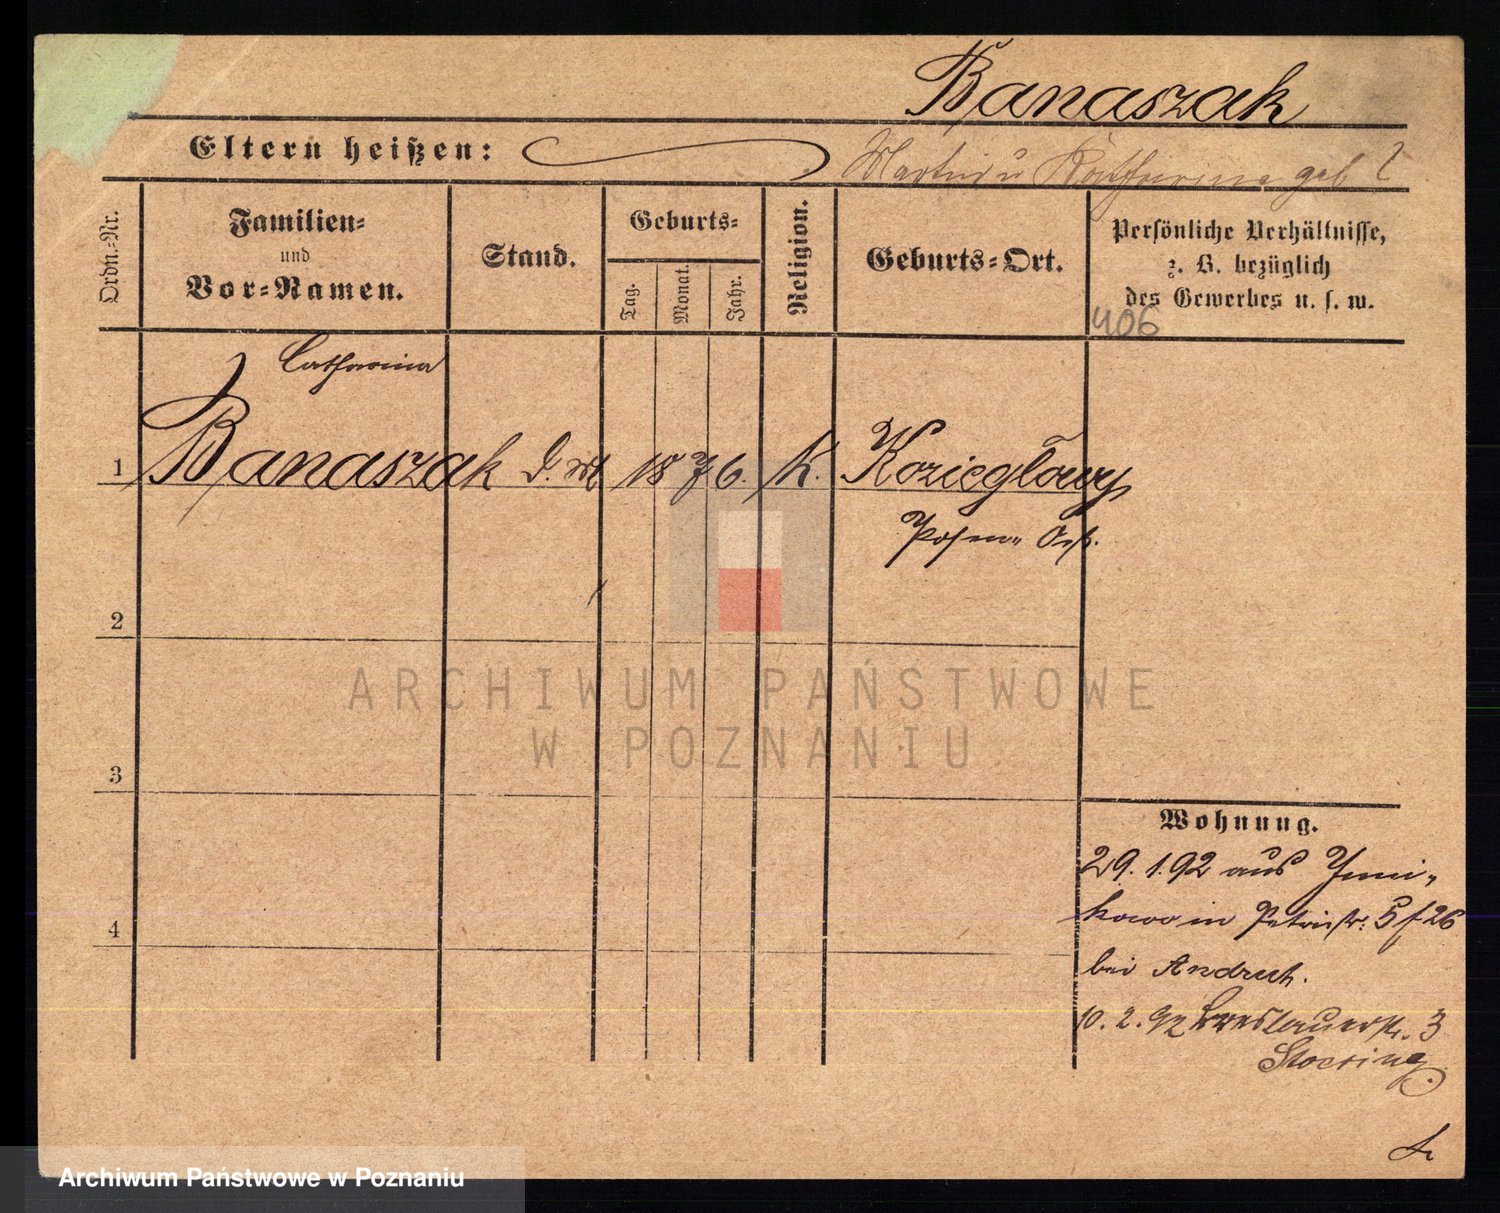 Banaszak
Eltern heißen: Martin u Katharina geb ?
Ordn.-Nr.
Familien-
und
Vor-Namen.
Stand.
Geburts-
Tag.
Monat.
Jahr.
Religion.
Geburts-Ort.
Persönliche Verhältnisse,
z. B. bezüglich
des Gewerbes u. s. w.
406
Catharina
1 Banaszak D. M 1876. K. Koziegłowy
Posen-Ost.
2
3
4
Wohnung.
29.1.92 aus Juni-
kowo in Petristr. 5 f 26
bei Andrich.
10.2.92 Breslauerstr. 3
Stoering
ARCHIWUM PAŃSTWOWE
W POZNANIU
Archiwum Państwowe w Poznaniu